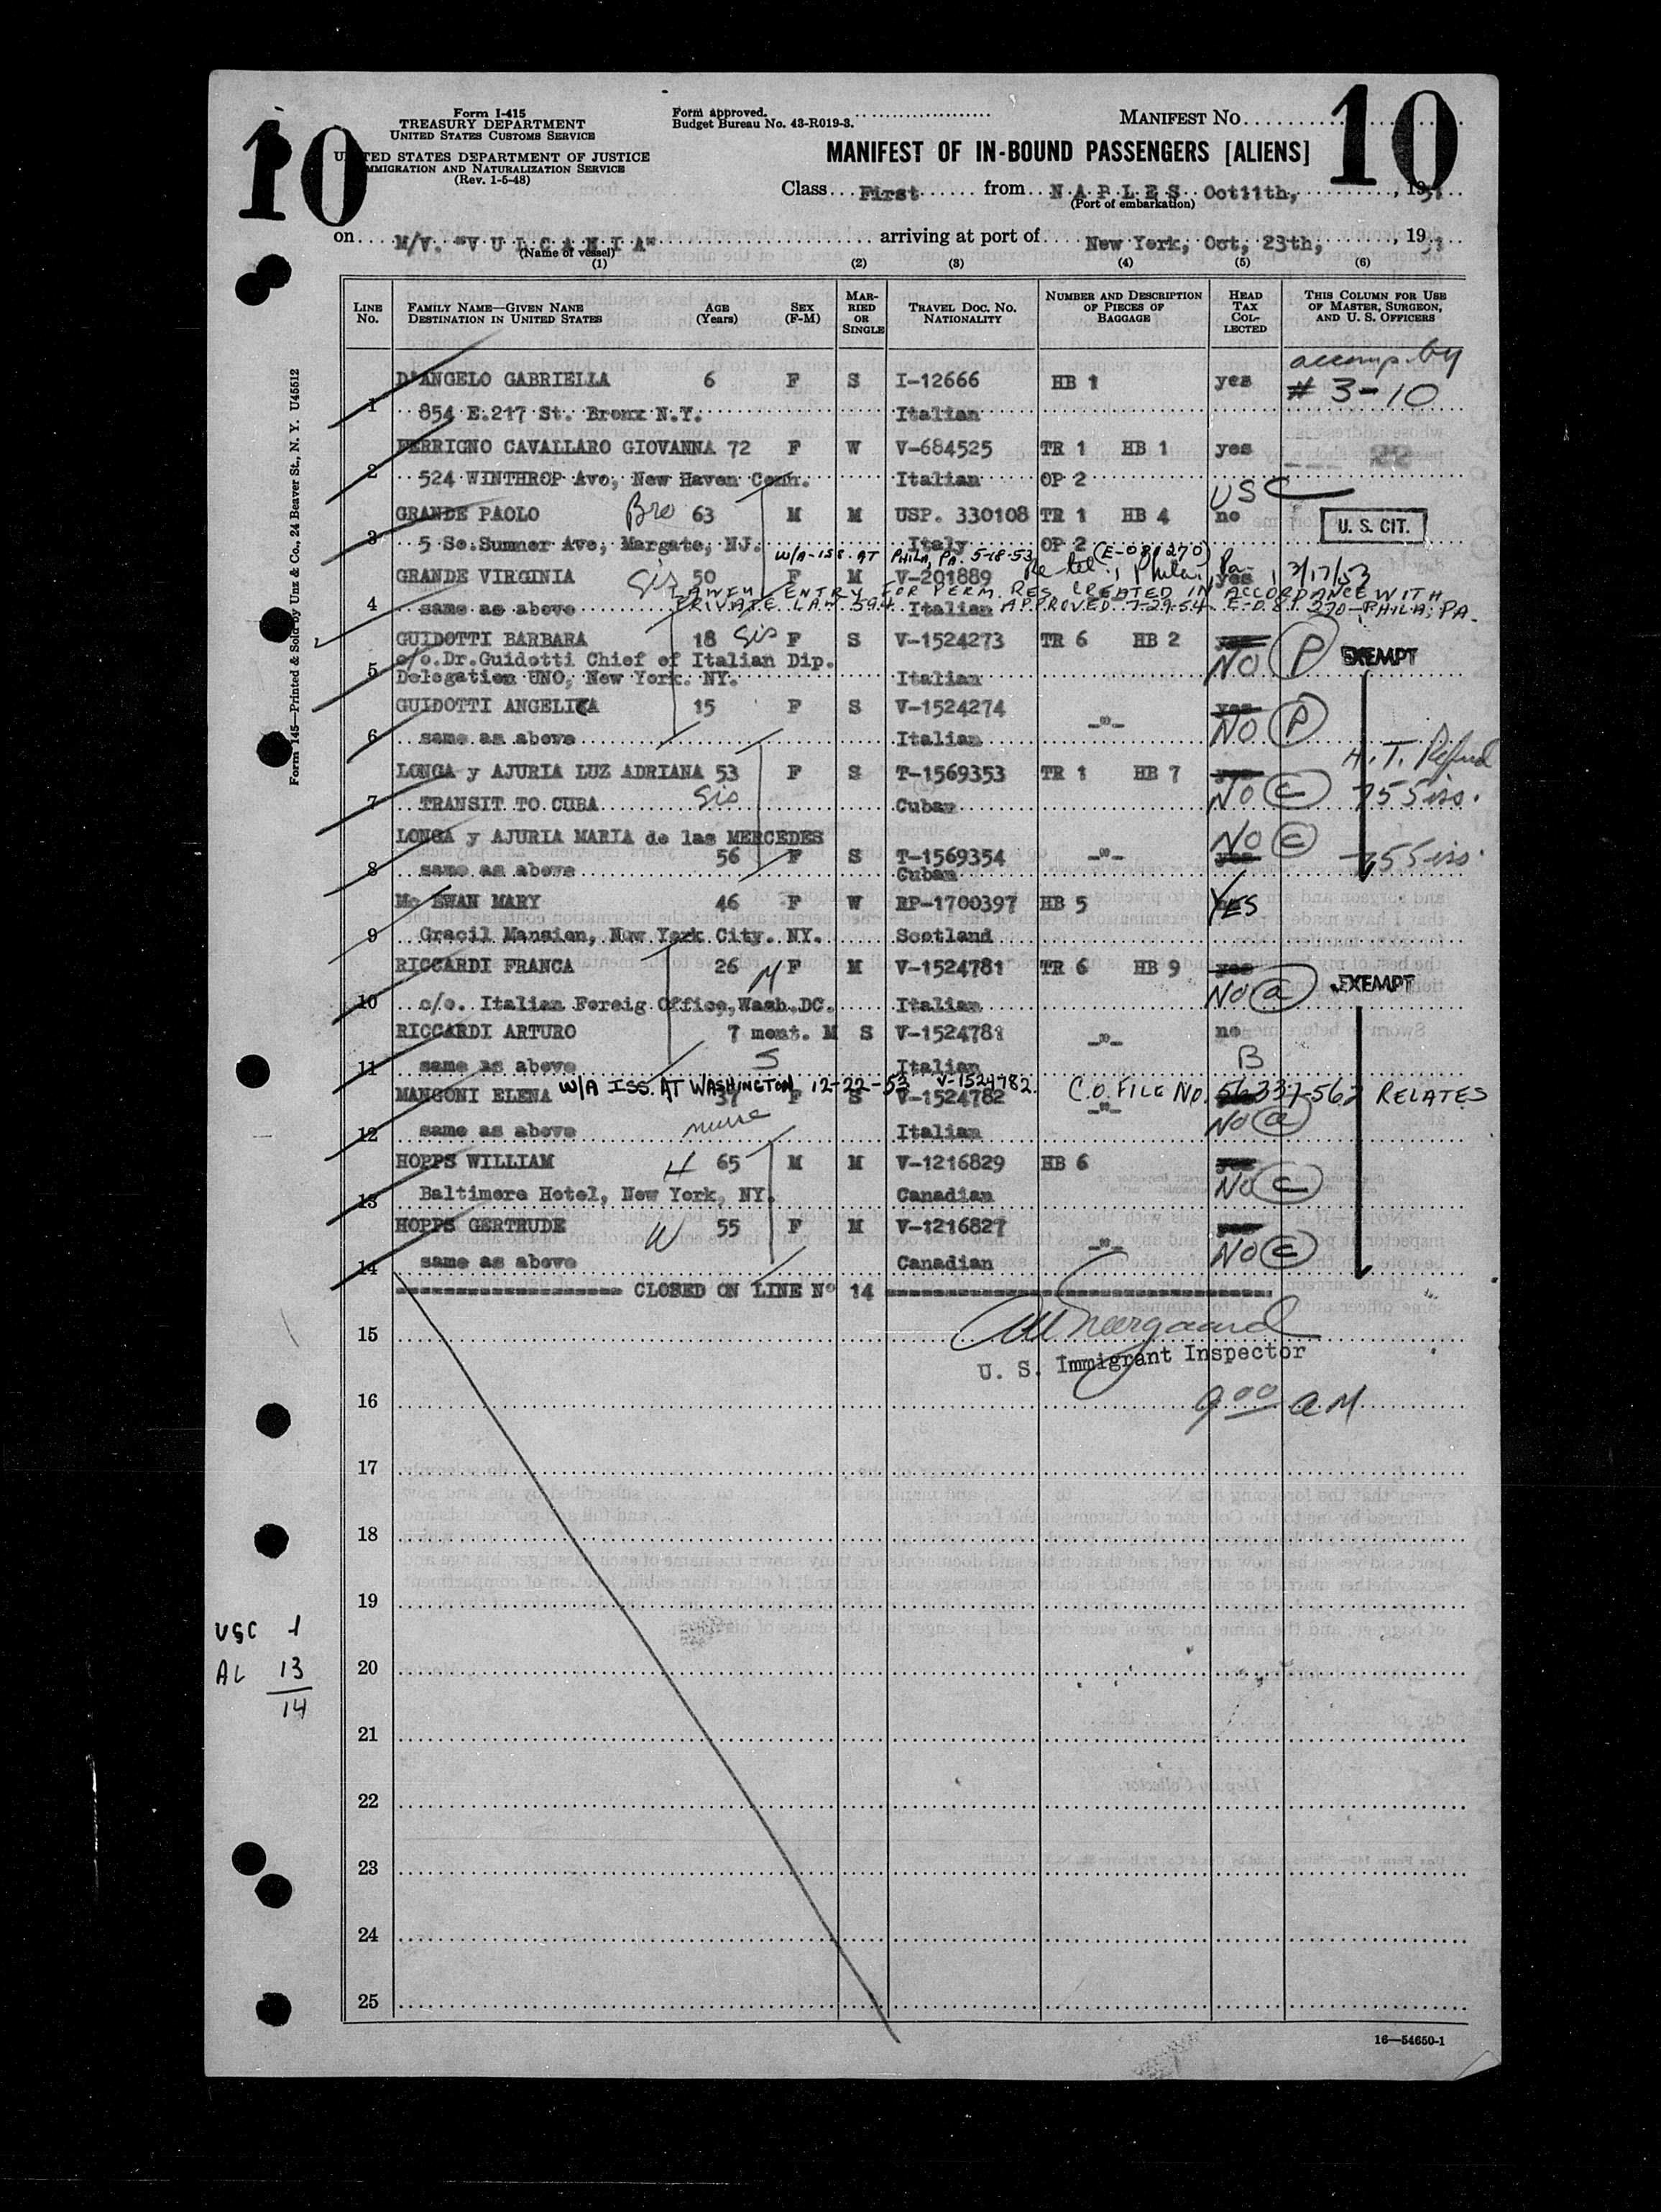 10
10
Form I-415
TREASURY DEPARTMENT
UNITED STATES CUSTOMS SERVICE
UNITED STATES DEPARTMENT OF JUSTICE
IMMIGRATION AND NATURALIZATION SERVICE
(Rev. 1-5-48)
Form approved.
Budget Bureau No. 43-R019-3.
MANIFEST NO.
MANIFEST OF IN-BOUND PASSENGERS [ALIENS]
Class First from NAPLES Oct11th, , 19
(Port of embarkation)
on M/V. "VULCANIA" arriving at port of New York, Oct, 23th, , 19
(Name of vessel)
(1) (2) (3) (4) (5) (6)
LINE No. FAMILY NAME—GIVEN NANE DESTINATION IN UNITED STATES AGE (Years) SEX (F-M) MARRIED OR SINGLE TRAVEL DOC. NO. NATIONALITY NUMBER AND DESCRIPTION OF PIECES OF BAGGAGE HEAD TAX COLLECTED THIS COLUMN FOR USE OF MASTER, SURGEON, AND U. S. OFFICERS
accomp. by
D'ANGELO GABRIELLA 6 F S I-12666 HB 1 yes # 3-10
1 854 E.217 St. Bronx N.Y. Italian
FERRIGNO CAVALLARO GIOVANNA 72 F W V-684525 TR 1 HB 1 yes 22
2 524 WINTHROP Ave, New Haven Conn. Italian OP 2
USC
GRANDE PAOLO Bro 63 M M USP. 330108 TR 1 HB 4 no U. S. CIT.
3 5 So.Sumner Ave, Margate, NJ. Italy OP 2
W/A-ISS. AT PHILA, PA. 5-18-53 (E-081270)
GRANDE VIRGINIA Sis 50 F M V-201889 yes
LAWFUL ENTRY FOR PERM. RES. CREATED IN ACCORDANCE WITH
4 same as above PRIVATE LAW 594 Italian APPROVED 7-29-54. E-081270-PHILA, PA.
GUIDOTTI BARBARA 18 Sis F S V-1524273 TR 6 HB 2 yes NO P EXEMPT
c/o.Dr.Guidotti Chief of Italian Dip.
5 Delegation UNO, New York. NY. Italian
GUIDOTTI ANGELICA 15 F S V-1524274 -"- yes NO P
6 same as above Italian
H. T. Refund
LONGA y AJURIA LUZ ADRIANA 53 F S T-1569353 TR 1 HB 7 yes
7 TRANSIT TO CUBA Sis Cuban NO C 755 iss.
LONGA y AJURIA MARIA de las MERCEDES NO C
56 F S T-1569354 -"- yes 755 iss.
8 same as above Cuban
Mc EWAN MARY 46 F W RP-1700397 HB 5 YES
9 Gracil Mansion, New York City. NY. Scotland
RICCARDI FRANCA 26 M F M V-1524781 TR 6 HB 9 yes EXEMPT
10 c/o. Italian Foreig Office,Wash.DC. Italian NO a
RICCARDI ARTURO 7 mont. M S V-1524781 -"- no
11 same as above S Italian B
W/A ISS. AT WASHINGTON 12-22-53 V-1524782. C.O. FILE NO. 56337-562 RELATES
MANGONI ELENA 37 F S V-1524782 -"-
12 same as above nurse Italian NO a
HOPPS WILLIAM H 65 M M V-1216829 HB 6 yes
13 Baltimore Hotel, New York, NY. Canadian NO C
HOPPS GERTRUDE W 55 F M V-1216827 -"- yes
14 same as above Canadian NO C
CLOSED ON LINE Nº 14
15
U. S. Immigrant Inspector
16 9 00 AM
17
18
19
20
21
22
23
24
25
USC 1
AL 13
14
Form 145—Printed & Sold by Unz & Co., 24 Beaver St., N. Y. U45512
16—54650-1